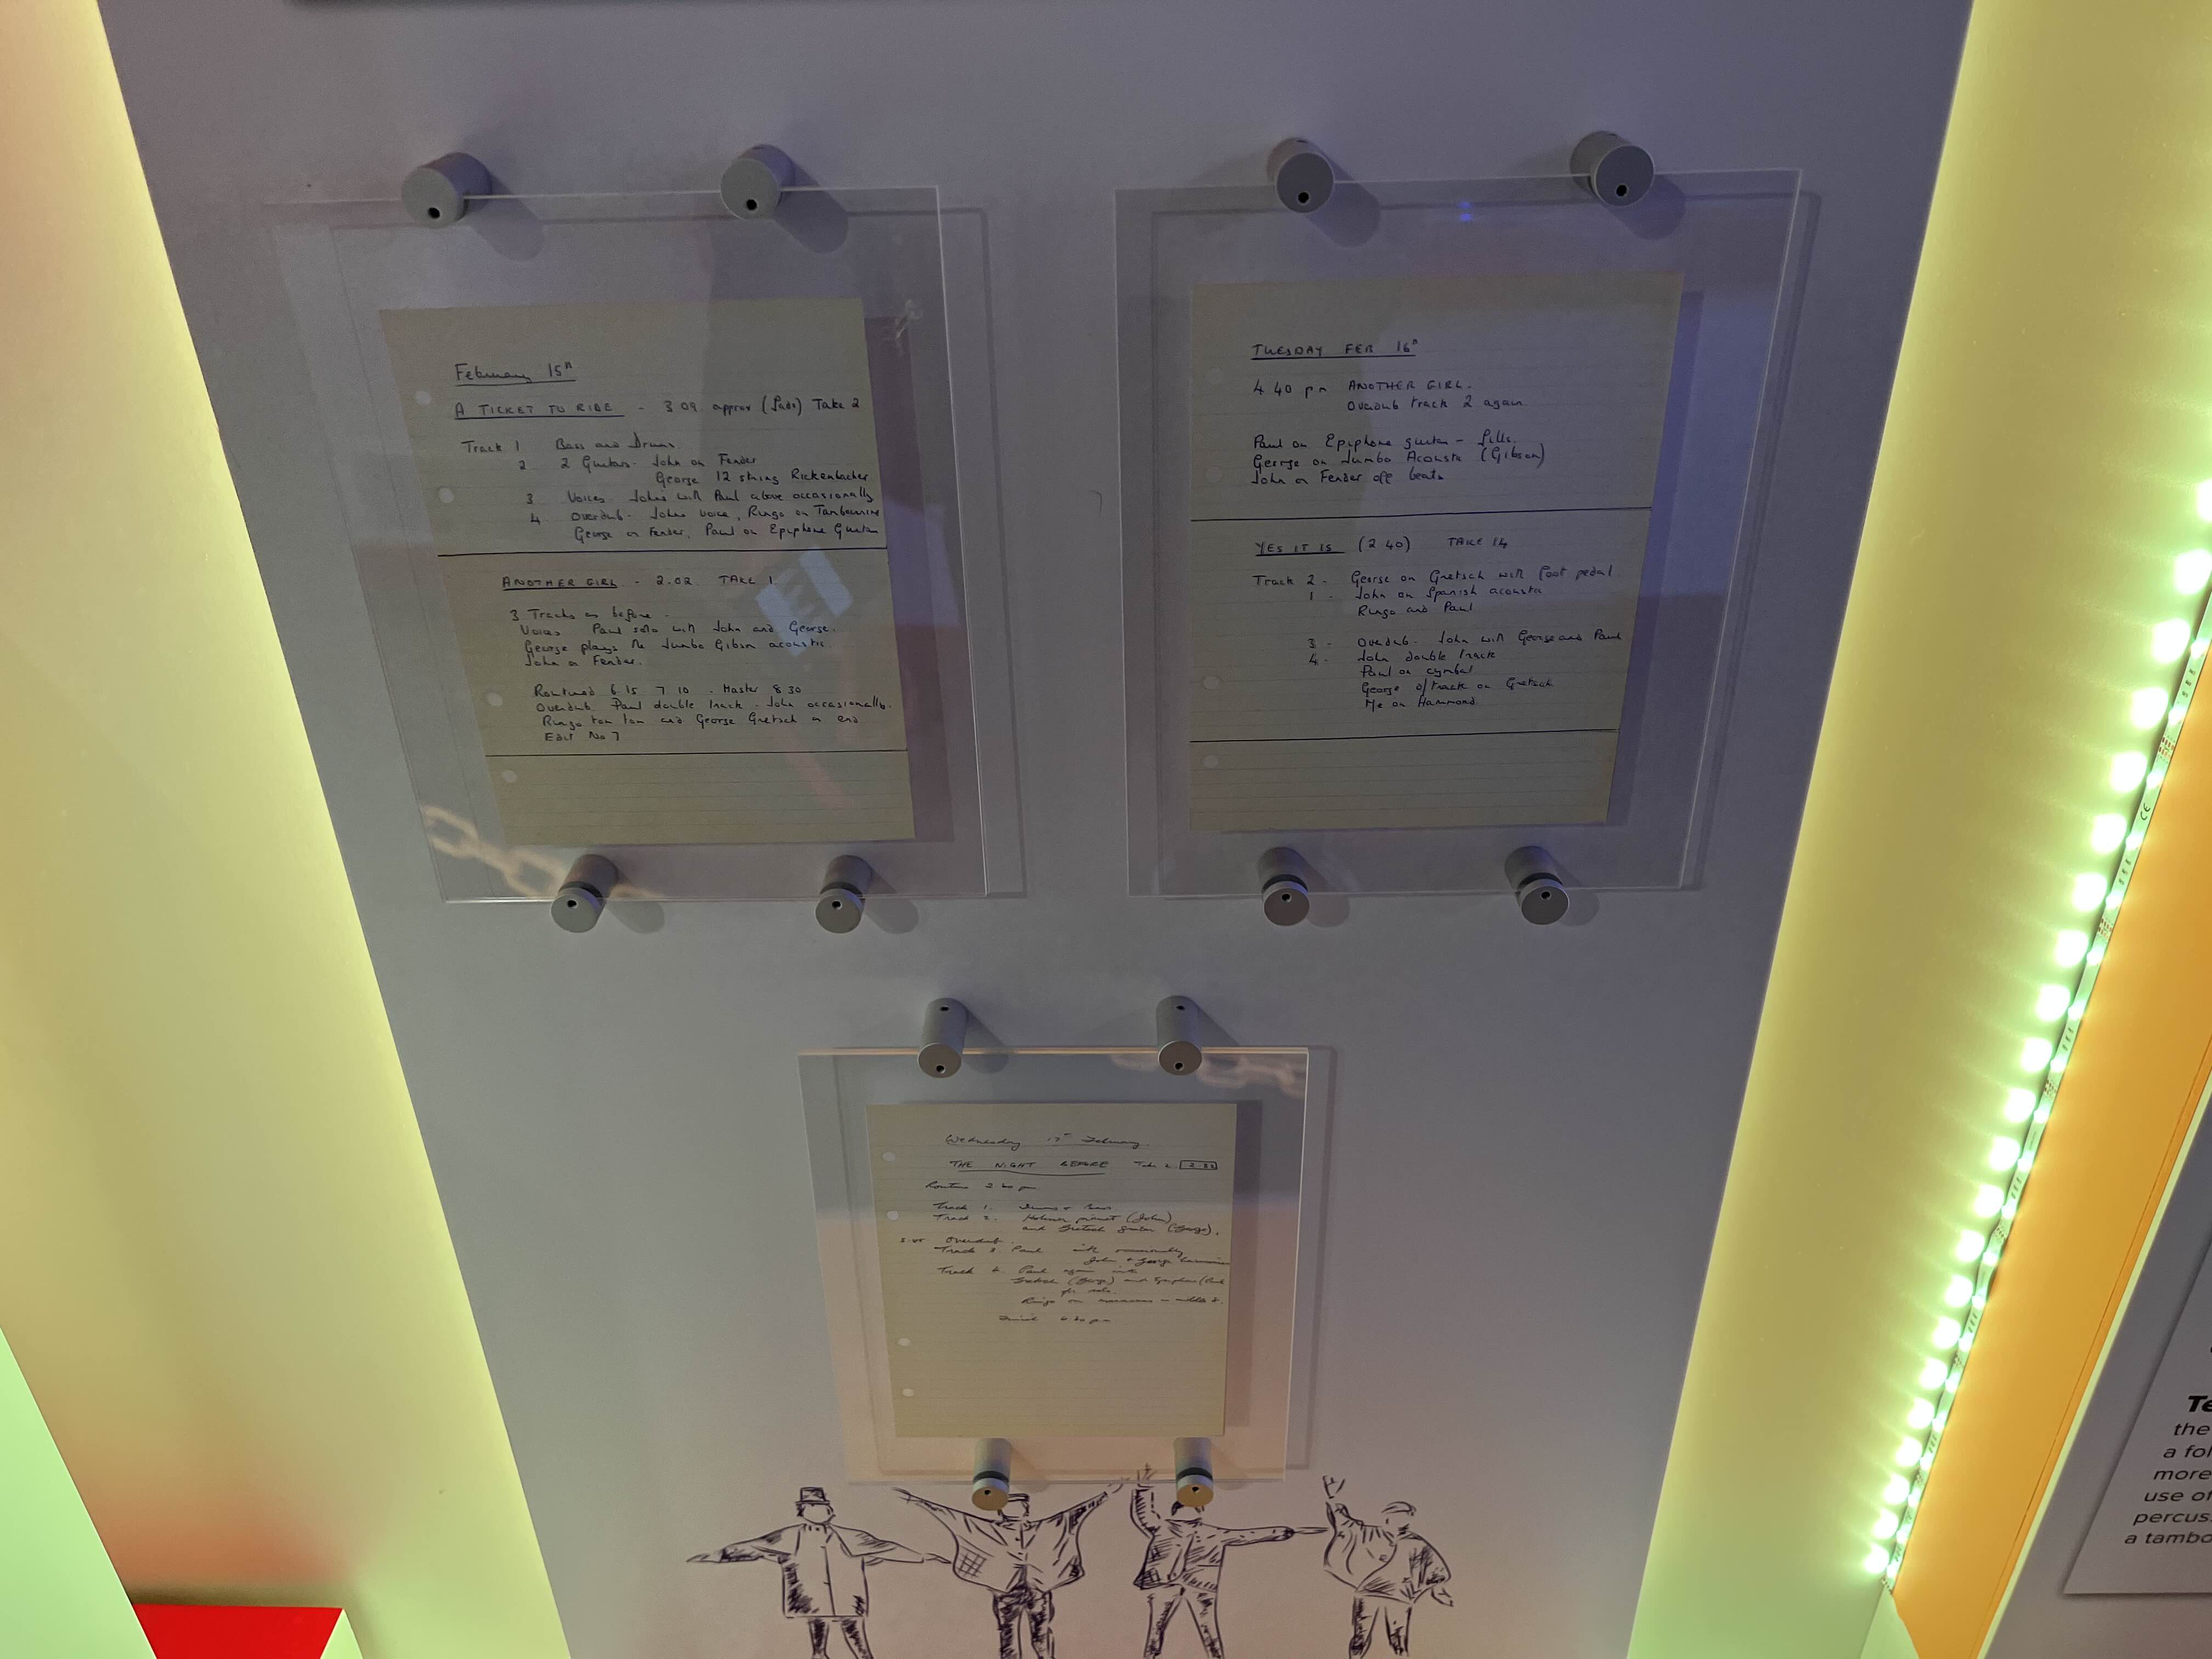 February 15th
A TICKET TO RIDE - 3.09 approx (fade) Take 2
Track 1 Bass and Drums.
2 2 Guitars - John on Fender
George 12 string Rickenbacher
3 Voices - Johns with Paul above occasionally
4 Overdub - Johns voice, Ringo on Tambourine
George on Fender, Paul on Epiphone Guitar
ANOTHER GIRL - 2.02 TAKE 1
3 Tracks as before -
Voices Paul solo with John and George.
George plays the Jumbo Gibson acoustic.
John on Fender.
Routined 6.15 7.10 - Master 8.30
Overdub Paul double track - John occasionally.
Ringo tom tom and George Gretsch on end
Edit No 7
TUESDAY FEB 16th
4 40 pm ANOTHER GIRL.
Overdub track 2 again
Paul on Epiphone guitar - fills.
George on Jumbo Acoustic (Gibson)
John on Fender off beats
YES IT IS (2 40) TAKE 14
Track 2 - George on Gretsch with foot pedal
1 - John on Spanish acoustic
Ringo and Paul
3 - Overdub - John with George and Paul
4 - John double track
Paul on cymbal
George d/track on Gretsch
Me on Hammond
Wednesday 17th February.
THE NIGHT BEFORE Take 2
Routine 2.40 pm
Track 1. Drums + Bass
Track 2. Hohner pianet (John)
and Gretsch guitar (George).
Overdub
Track 3 Paul with occasionally
John + George harmonies
Track 4. Paul again with
Gretsch (George) and Epiphone (Paul
for solo.
Ringo on maracas - middle 8.
Te
the
a fol
more
use of
percus
a tambo